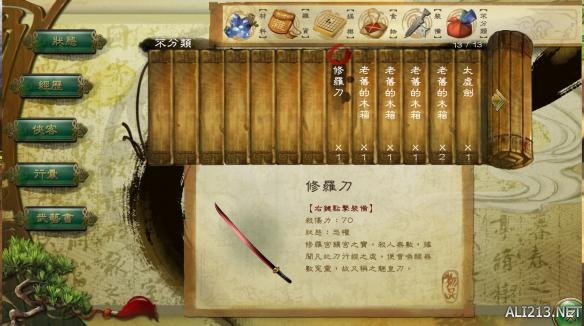 狀態
經歷
俠客
行囊
武藝會
不分類
材料
雜貨
食物
裝備
不分類
13 / 13
修羅刀 ×1
老舊的木箱 ×1
老舊的木箱 ×1
老舊的木箱 ×1
老舊的木箱 ×2
太虛劍 ×1
修羅刀
【右鍵點擊裝備】
殺傷力：70
狀態：恐懼
修羅宮鎮宮之寶，殺人無數，據
聞凡此刀行經之處，便會喚醒無
數冤靈，故又稱之魍皇刀。
ALI213.NET